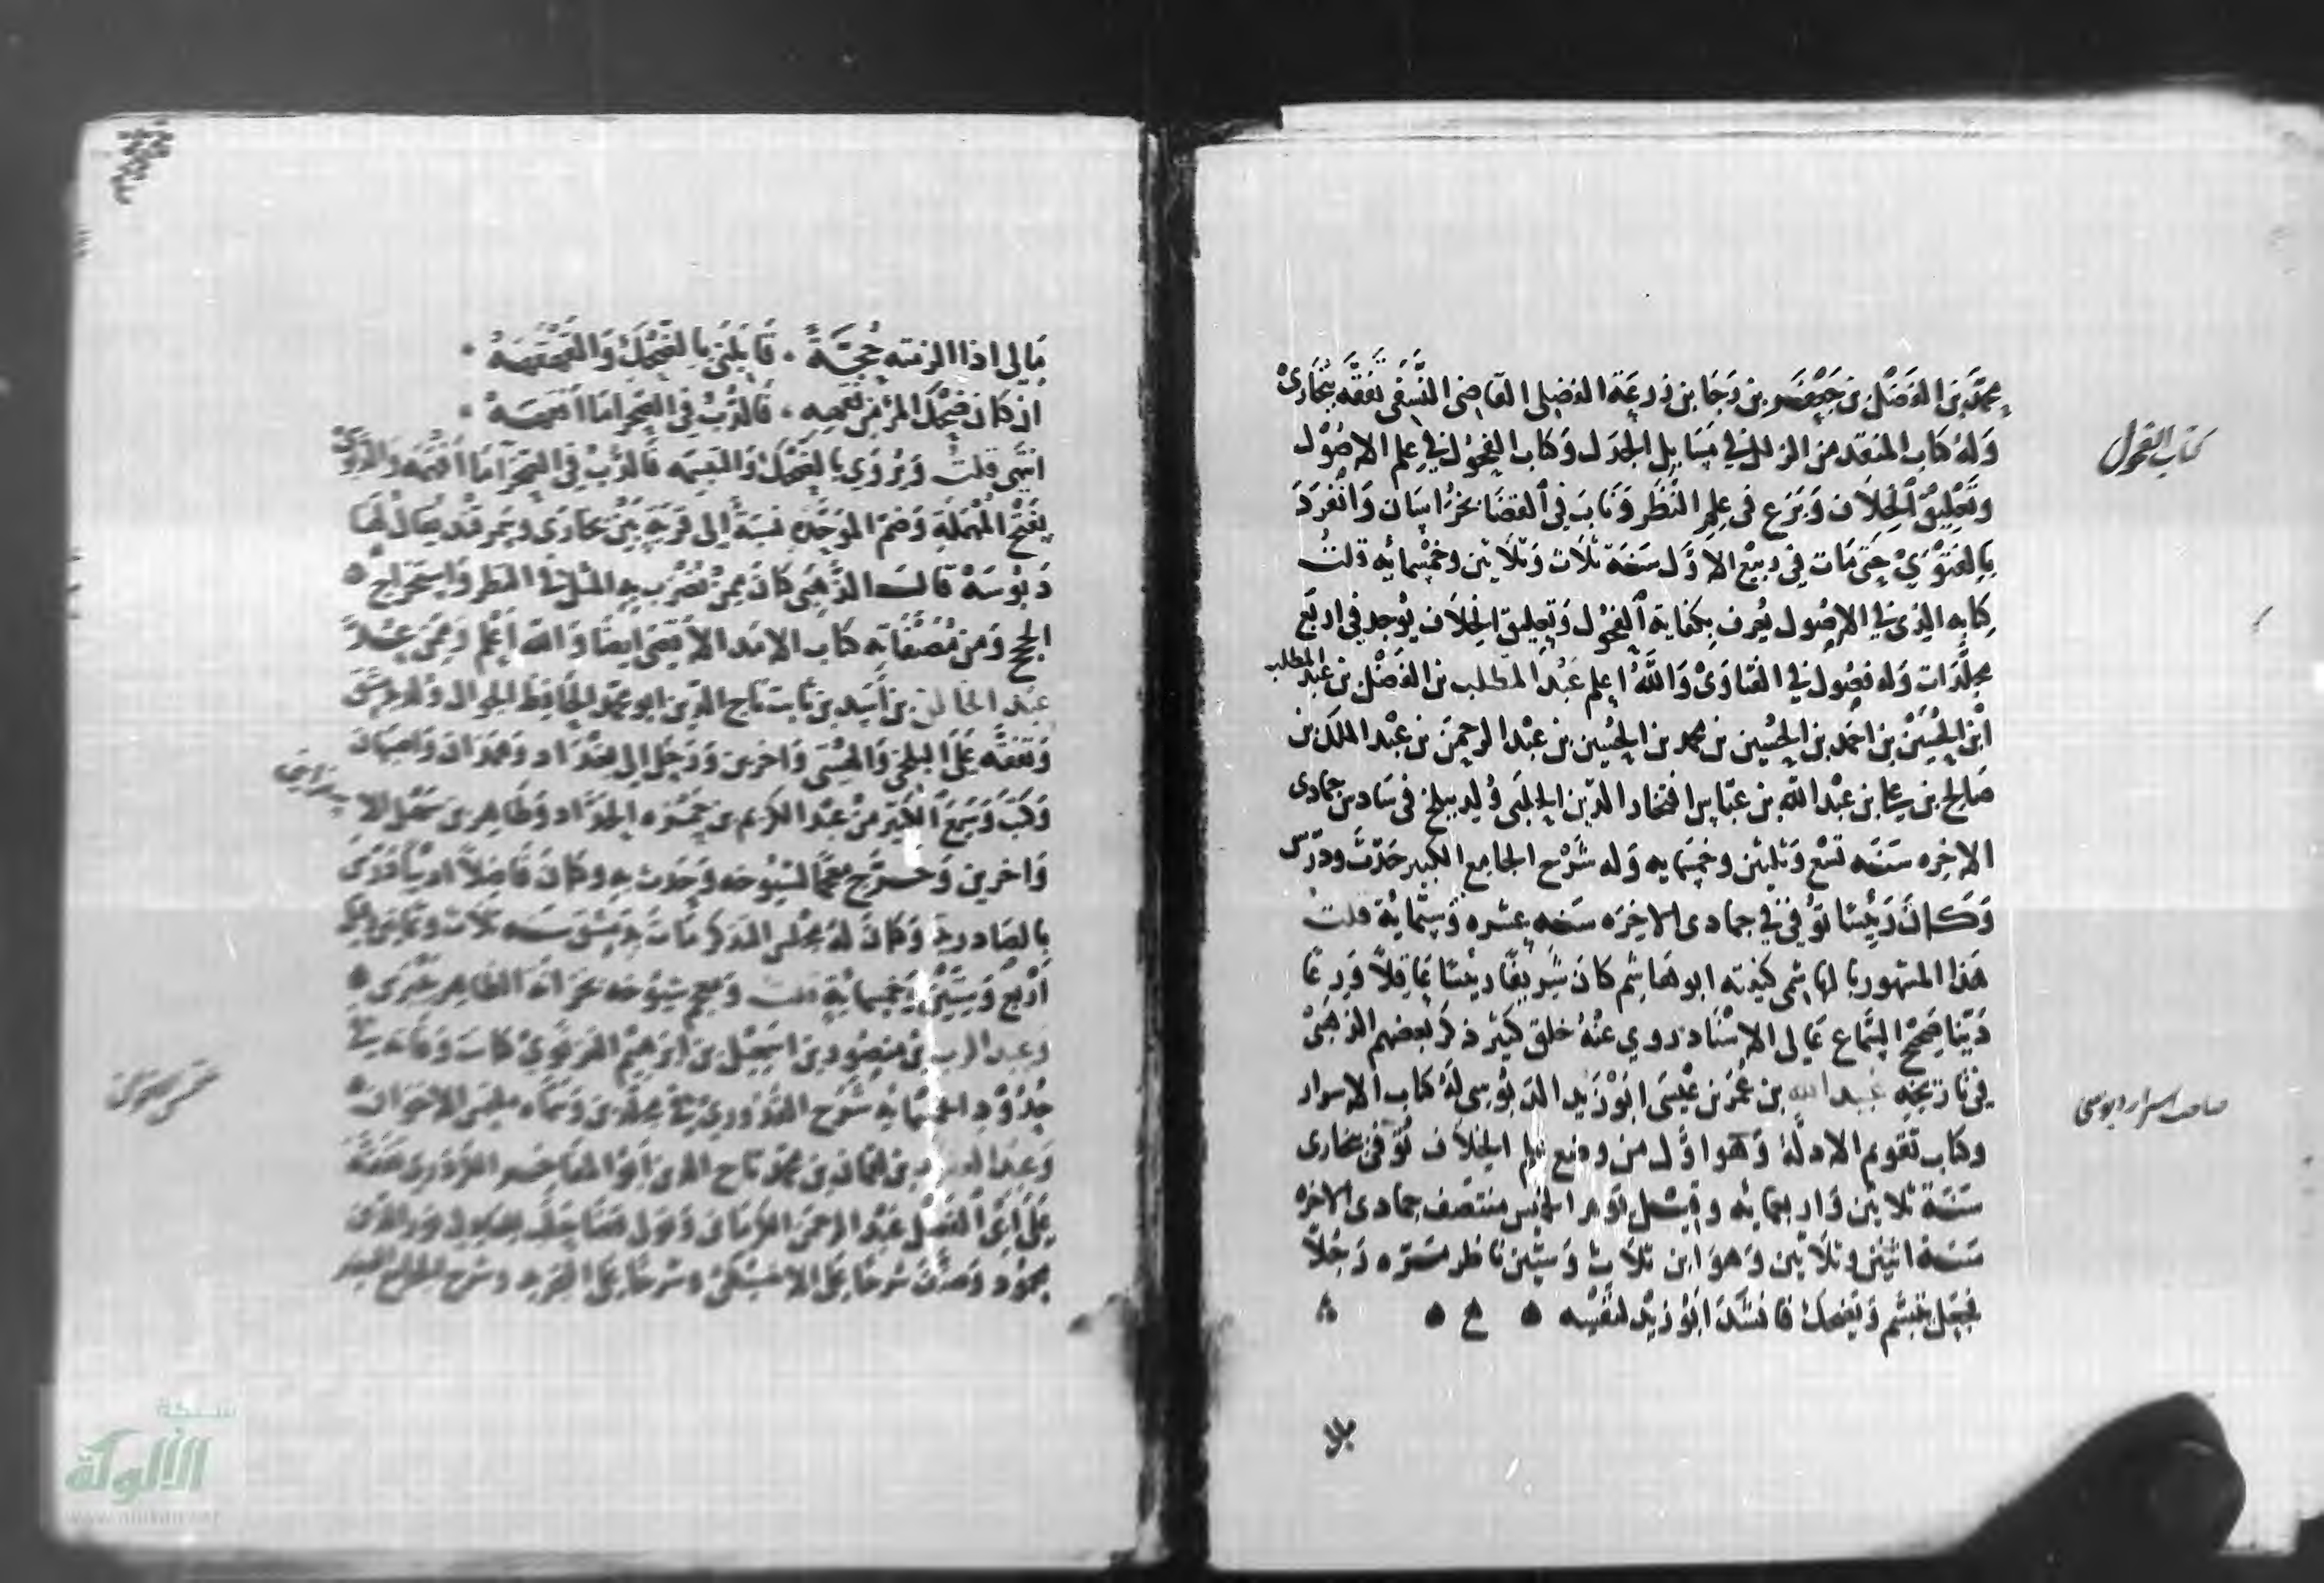 محمد بن الفضل بن جعفر بن رجا بن زرعة الفضلى القاضى النسفى تفقه ببخارى
وله كتاب المنقد من الزلل في مسايل الجدل وكتاب الفحول في علم الاصول
وتعليق الخلاف وبرع فى علم النظر وناب فى القضا بخراسان وانفرد
بالفتوي حتى مات في ربيع الاول سنة ثلاث وثلاثين وخمسمائه قلت
كتابه الذى في الاصول يعرف بكفاية الفحول وتعليق الخلاف يوجد في اربع
مجلدات وله فصول في الفتاوى والله اعلم عبد المطلب بن الفضل بن عبد المطلب
ابن الحسين بن احمد بن الحسين بن محمد بن الحسين بن عبد الرحمن بن عبد الملك بن
صالح بن علي بن عبد الله بن عباس افتخار الدين الحلبى ولد ببلخ فى سادس جمادى
الاخره سنه تسع وثلثين وخمسمايه وله شرح الجامع الكبير حدث ودرس
وكان رئيسا توفى في جمادى الاخره سنه ستة عشره وستمائة قلت
هذا المشهور بالهاشمى كنيته ابو هاشم كان شريفا رئيسا عاقلا ورعا
دينا صحيح السماع عالى الاسناد روي عنه خلق كثير ذكر بعضهم الذهبى
فى تاريخه عبد الله بن عمر بن عيسى ابو زيد الدبوسى له كتاب الاسرار
وكتاب تقويم الادلة وهو اول من وضع علم الخلاف توفى ببخارى
سنة ثلاثين واربعمائه وقيل يوم الخميس منتصف جمادى الاخره
سنة اثنين وثلاثين وهو ابن ثلاث وستين ناظر مره رجلا
فجعل يتبسم ويضحك فانشد ابو زيد لنفسه
كتاب الفحول
صاحب اسرار دبوسى
مالى اذا الزمته حجة قابلنى بالضحك والقهقهة
ان كان ضحك المرء من فقهه فالدب فى الصحرا ما افقهه
انتهى قلت ويروي بالضحك والتبسمه فالدب في الصحرا ما افقهه والدبوسى
بفتح المهملة وضم الموحدة نسبة الى قرية بين بخارى وسمرقند يقال لها
دبوسه قال الذهبى كان ممن يضرب به المثل فى النظر واستخراج
الحجج ومن مصنفاته كتاب الامد الاقصى ايضا والله اعلم
عبد الخالق بن اسد بن ثابت تاج الدين ابو محمد الحافظ الجوال ولد بدمشق
وتفقه على البلخى واخرين ورحل الى بغداد وهمدان واصبهان
وكتب وسمع الكثير من عبد الكريم بن حمزه الحداد وطاهر بن سهل
واخرين وخرج معجما لشيوخه وحدث به وكان فاضلا اديبا
بالصادرية وكان له مجلس التذكير مات بدمشق سنه ثلاث
اربع وستين وخمسمائة قلت
وعبد الرب بن منصور بن اسمعيل بن ابرهيم الغزنوي كانت وفاته في
حدود الخمسمائة شرح القدوري في مجلدين وسماه ملتمس الاخوان
وعبد الغفور بن لقمان بن محمد تاج الدين ابو المفاخر الكردرى تفقه
على ابى الفضل عبد الرحمن الكرمانى وتولى قضا حلب نور الدين
محمود وصنف شرحا على التجريد وشرح الجامع الصغير